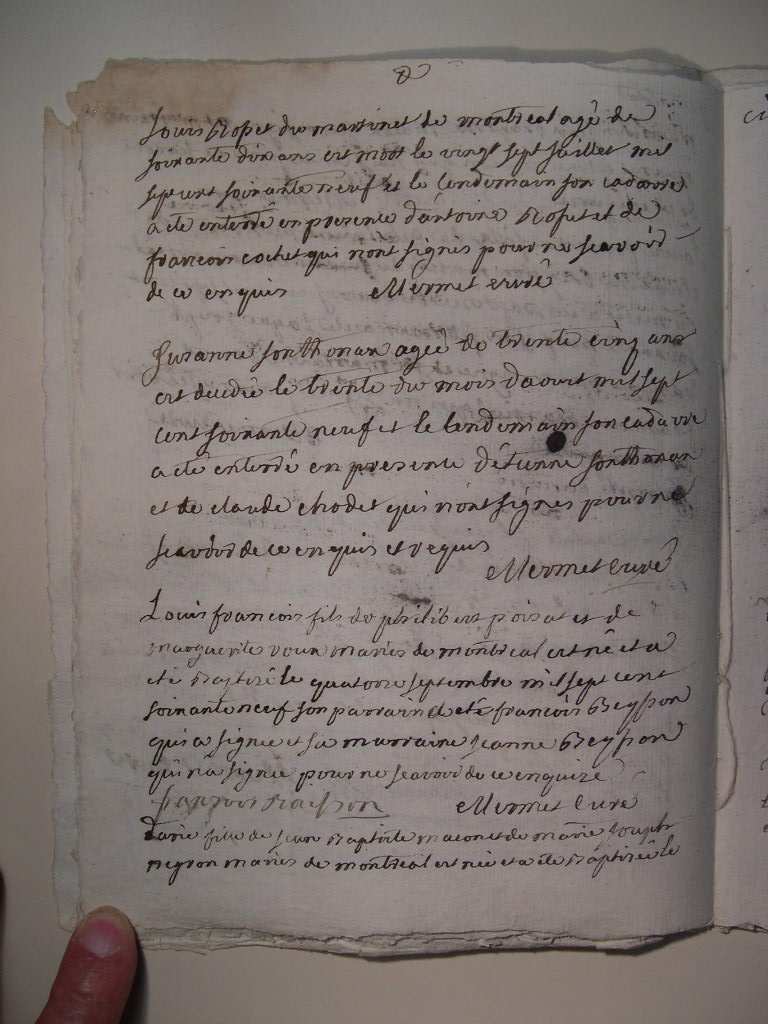 Louis Ropet du martinet de montreal agé de
soixante dix ans est mort le vingt sept juillet mil
sept cent soixante neuf et le lendemain son cadavre
a eté enterré en presence d'antoine Ropet et de
francois cochet qui n'ont signés pour ne sçavoir
de ce enquis Mermet curé
Suzanne Sonthonax agée de trente cinq ans
est decedée le trente du mois daoust mil sept
cent soixante neuf et le lendemain son cadavre
a eté enterré en presence d'étienne Sonthonax
et de claude chodet qui n'ont signés pour ne
scavoir de ce enquis et requis
Mermet curé
Louis francois fils de philibert poisat et de
marguerite mariés de montreal est né et a
eté baptisé le quatorze septembre mil sept cent
soixante neuf son parrain a eté francois Beysson
qui a signé et sa marraine jeanne Beysson
qui n'a signée pour ne scavoir de ce enquize
françois Mermet curé
fille de jean Baptiste macon et de marie joseph
negron mariés de montreal est née et a eté Baptizée le